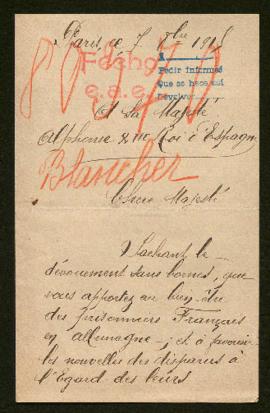 Paris, ce 7 1918
80977
Fecho
c.a.e.
Pedir informes
Que se hace aqui
Devolver
A Sa Majesté
Alphonse XIII Roi d'Espagne
Blancher
Chère Majesté
Sachant le
dévouement sans bornes, que
vous apportez au bien être
des prisonniers Français
en allemagne; et à
les nouvelles des disparus à
l'Égard des leurs